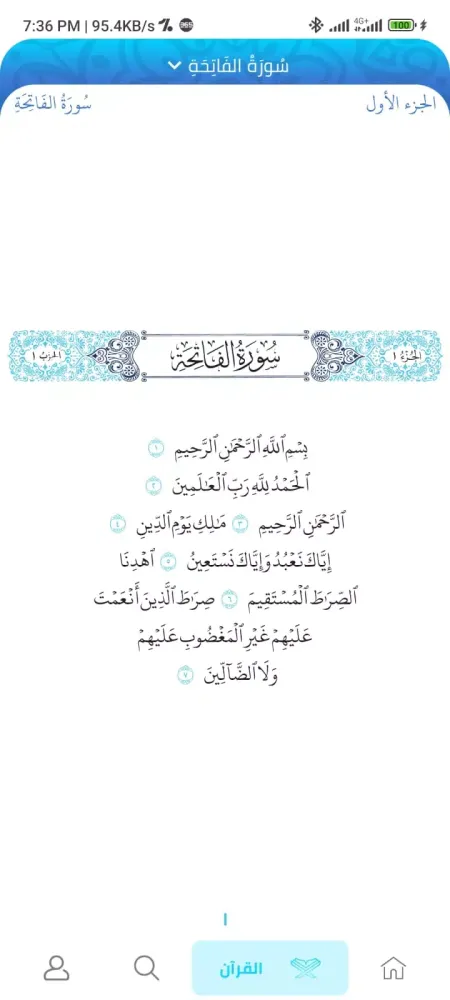 7:36 PM | 95.4KB/s
4G+ 100
سُورَةُ الفَاتِحَةِ
الجزء الأول سُورَةُ الفَاتِحَةِ
الجُزْءُ ١ سُورَةُ الفَاتِحَةِ الحِزْبُ ١
بِسْمِ ٱللَّهِ ٱلرَّحْمَٰنِ ٱلرَّحِيمِ ١
ٱلْحَمْدُ لِلَّهِ رَبِّ ٱلْعَٰلَمِينَ ٢
ٱلرَّحْمَٰنِ ٱلرَّحِيمِ ٣ مَٰلِكِ يَوْمِ ٱلدِّينِ ٤
إِيَّاكَ نَعْبُدُ وَإِيَّاكَ نَسْتَعِينُ ٥ ٱهْدِنَا
ٱلصِّرَٰطَ ٱلْمُسْتَقِيمَ ٦ صِرَٰطَ ٱلَّذِينَ أَنْعَمْتَ
عَلَيْهِمْ غَيْرِ ٱلْمَغْضُوبِ عَلَيْهِمْ
وَلَا ٱلضَّآلِّينَ ٧
١
القرآن